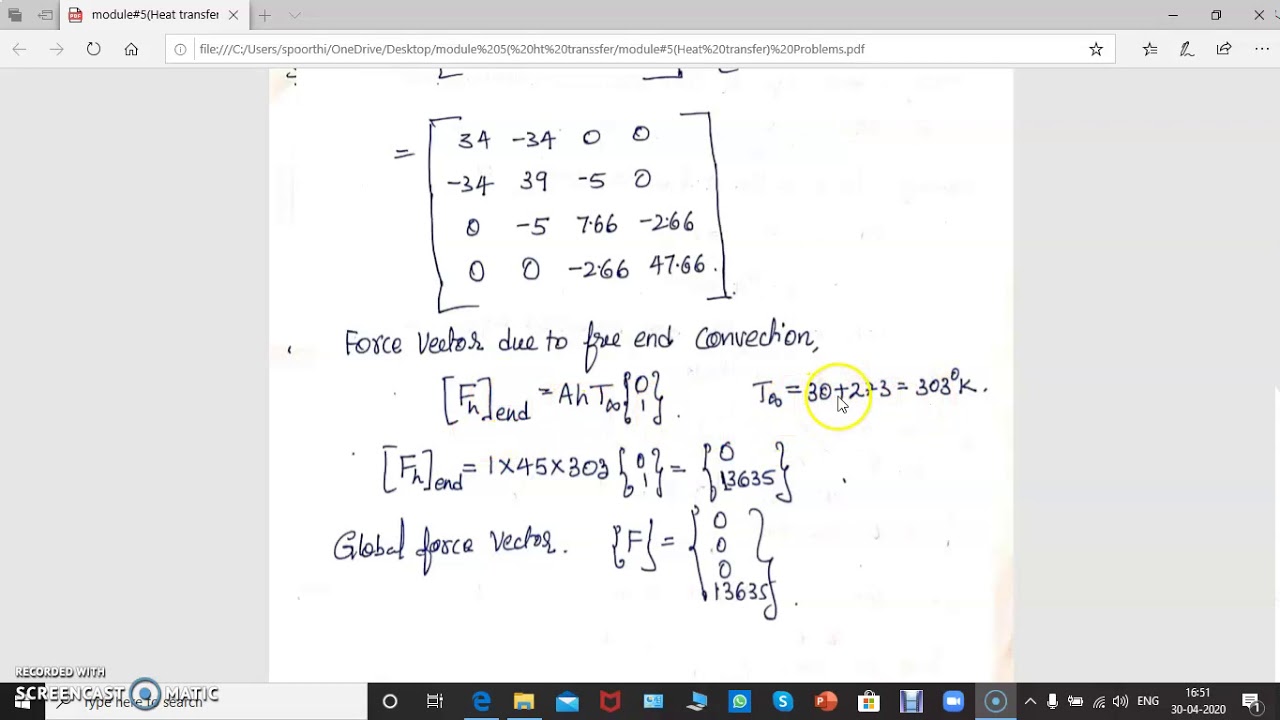 module#5(Heat transfer
file:///C:/Users/spoorthi/OneDrive/Desktop/module%205(%20ht%20transsfer/module#5(Heat%20transfer)%20Problems.pdf
= [ 34 -34 0 0
-34 39 -5 0
0 -5 7.66 -2.66
0 0 -2.66 47.66 ]
Force Vector due to free end Convection,
[Fh]end = AhT∞ {0 1}. T∞ = 30+273 = 303°K.
[Fh]end = 1×45×303 {0 1} = {0 13635}
Global force Vector. {F} = {0 0 0 13635}.
RECORDED WITH
SCREENCAST MATIC
Type here to search
ENG
16:51
30-04-2020